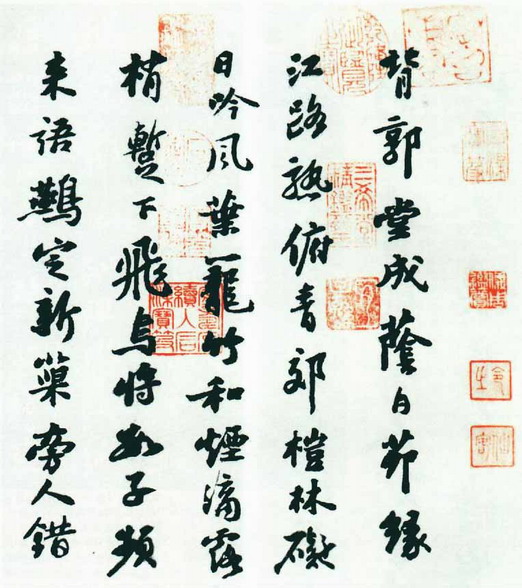 背郭堂成蔭白茆緣
江路熟俯青郊榿林礙
日吟風葉籠竹和煙滴露
梢暫下飛烏將數子頻
来語鷰定新巢旁人錯